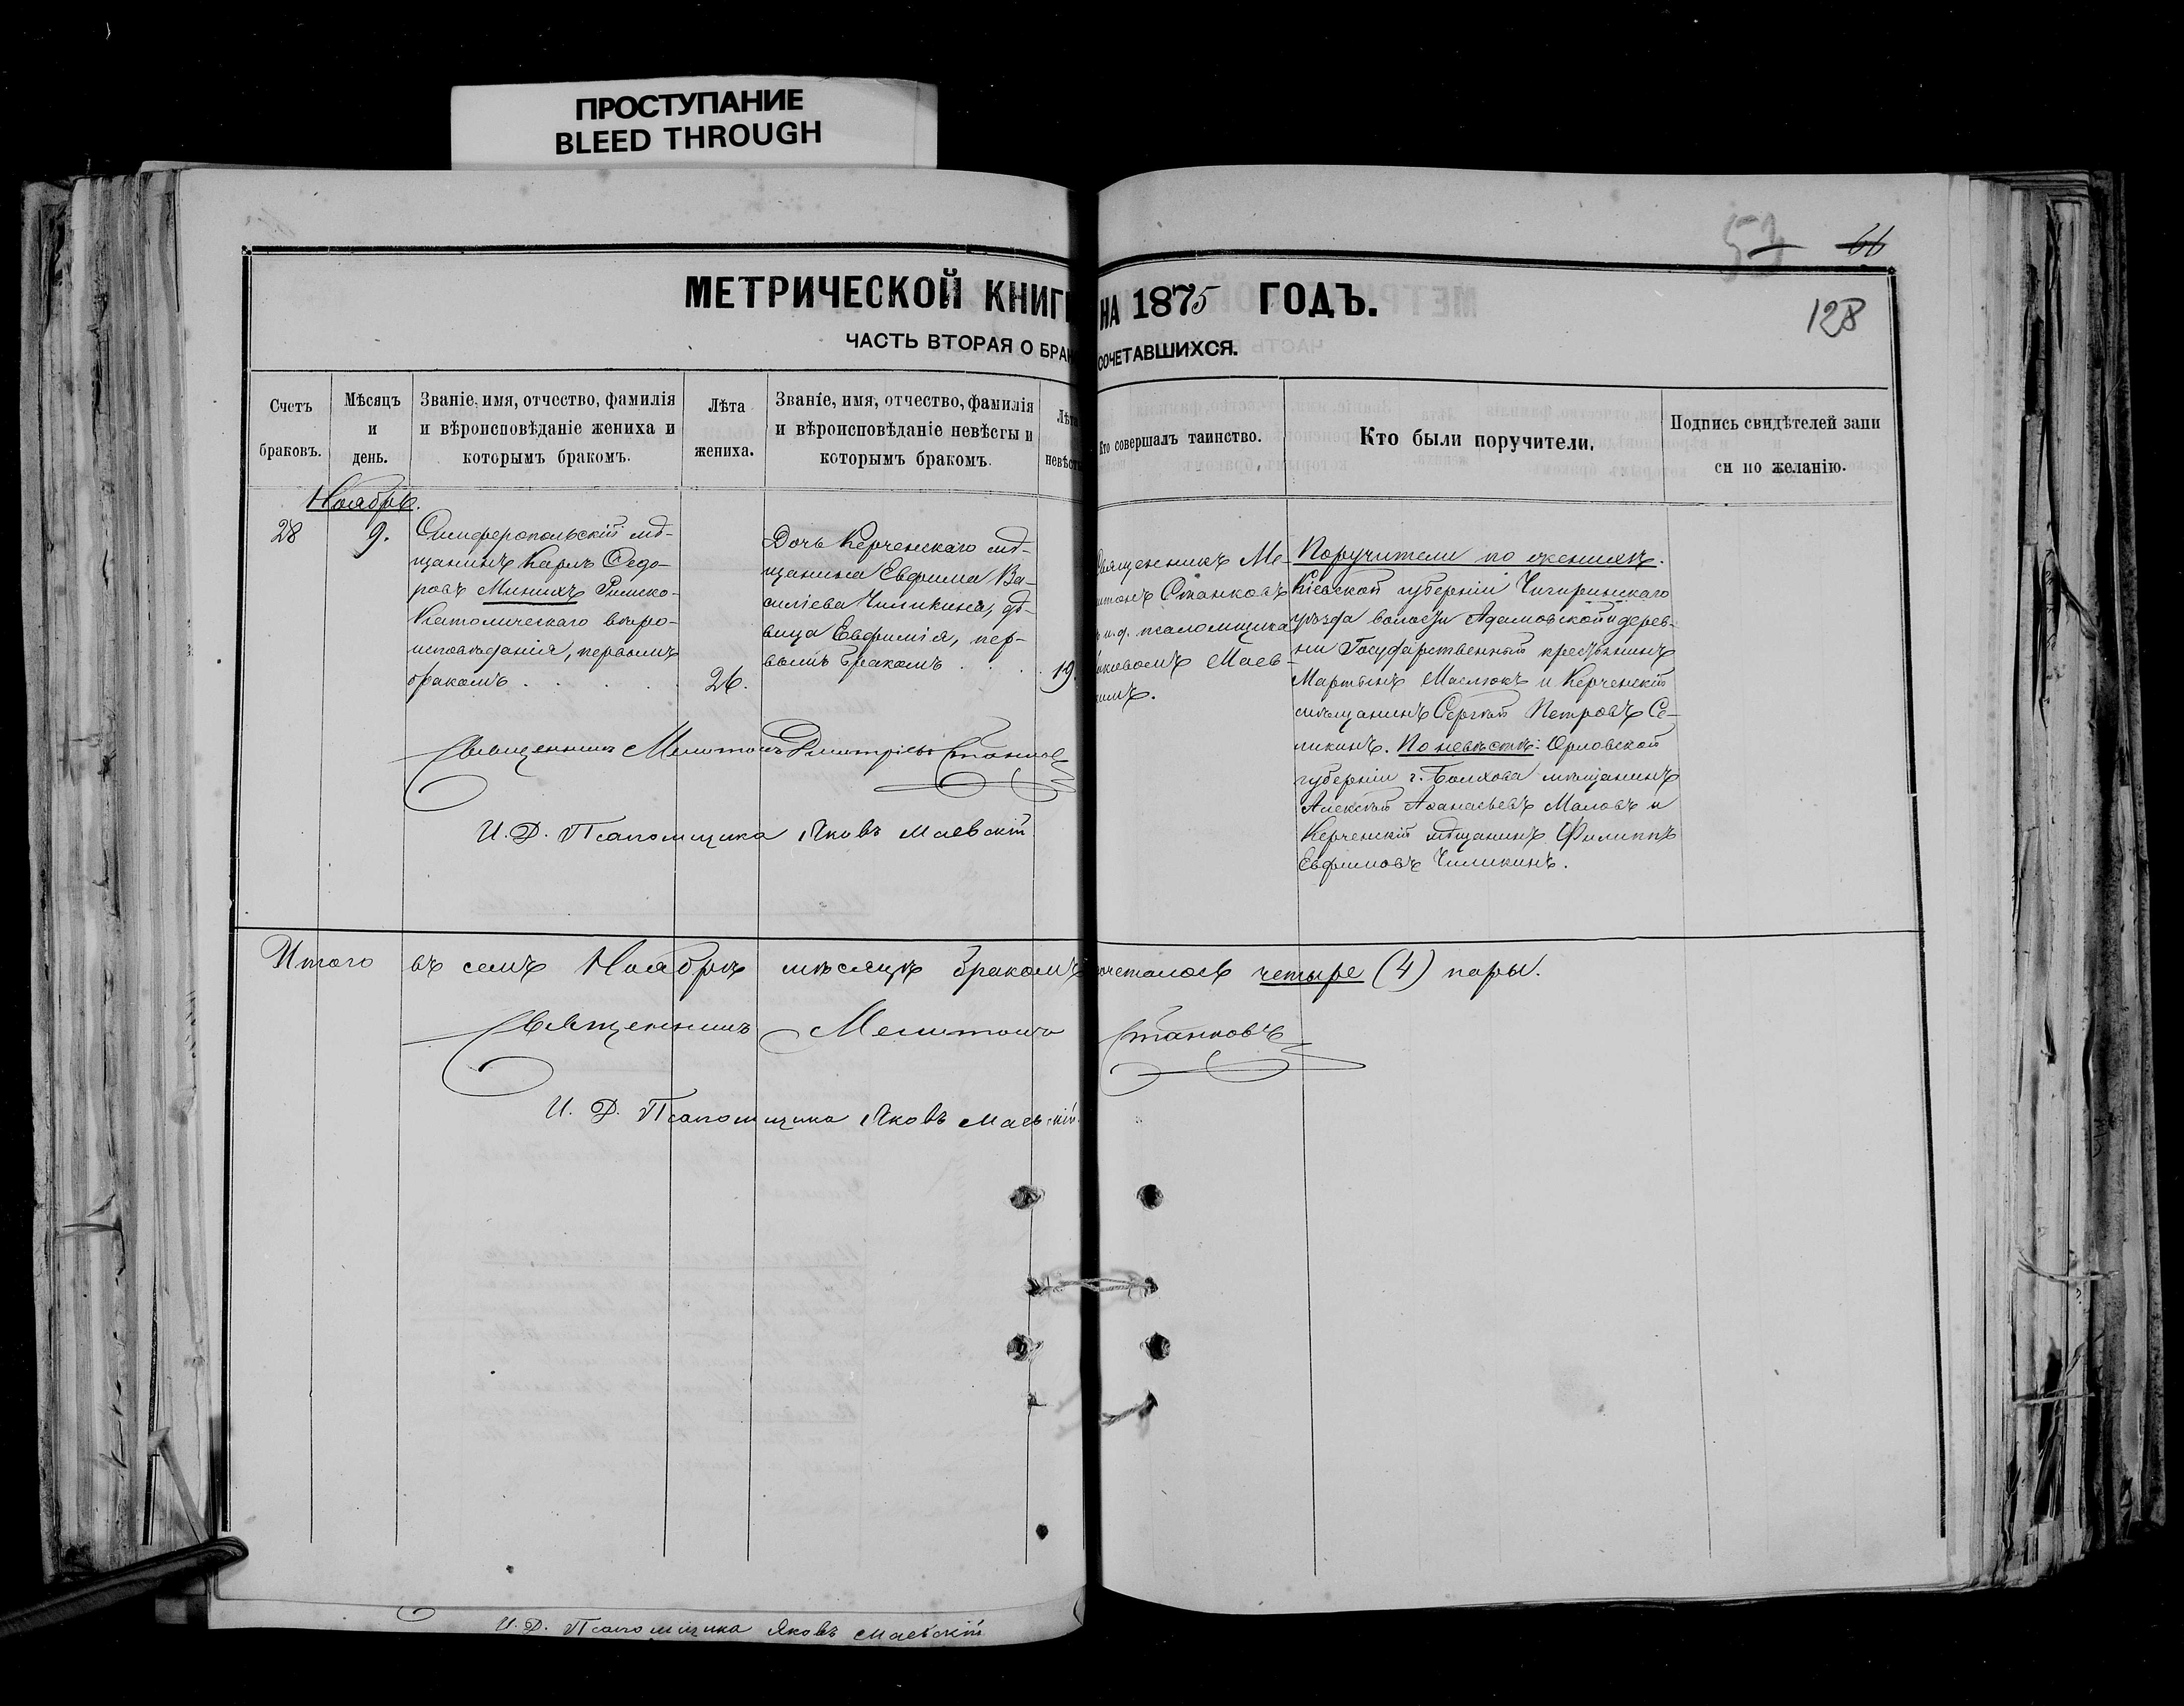 ПРОСТУПАНИЕ
BLEED THROUGH
53 66
МЕТРИЧЕСКОЙ КНИГИ НА 1875 ГОДЪ.
128
ЧАСТЬ ВТОРАЯ О БРАКОСОЧЕТАВШИХСЯ.
Счетъ
браковъ.
Мѣсяцъ
и
день.
Званіе, имя, отчество, фамилія
и вѣроисповѣданіе жениха и
которымъ бракомъ.
Лѣта
жениха.
Званіе, имя, отчество, фамилія
и вѣроисповѣданіе невѣсты и
которымъ бракомъ.
Лѣта
невѣсты
Кто совершалъ таинство.
Кто были поручители.
Подпись свидѣтелей запи
си по желанію.
Ноябрь.
28
9.
Симферопольскій мѣ-
щанинъ Карлъ Ѳедо-
ровъ Минихъ Римско-
Католическаго вѣро-
исповѣданія, первымъ
бракомъ
26.
Дочь Керченскаго мѣ-
щанина Евфима Ва-
силіева Чиликина, дѣ-
вица Евфимія, пер-
вымъ бракомъ
19.
Священникъ Ме-
литонъ Станковъ
и.д. псаломщика
Яковомъ Маев-
кимъ.
Поручители по женихѣ.
Кіевской губерніи Чигиринскаго
уѣзда волости Адамовской и дерев-
ни Государственный крестьянинъ
Мартынъ Маслюкъ и Керченскій
мѣщанинъ Сергѣй Петровъ Се-
ликинъ. По невѣстѣ: Орловской
губерніи г. Болхова мѣщанинъ
Алексѣй Аѳанасьевъ Маловъ и
Керченскій мѣщанинъ Филиппъ
Евфимовъ Чиликинъ.
Священникъ Мелитонъ Дмитріевъ Станковъ
И. Д. Псаломщика Яковъ Маевскій
Итого въ семъ Ноябрѣ мѣсяцѣ бракомъ сочеталось четыре (4) пары.
Священникъ Мелитонъ Станковъ
И. Д. Псаломщика Яковъ Маевскій.
И. Д. Псаломщика Яковъ Маевскій